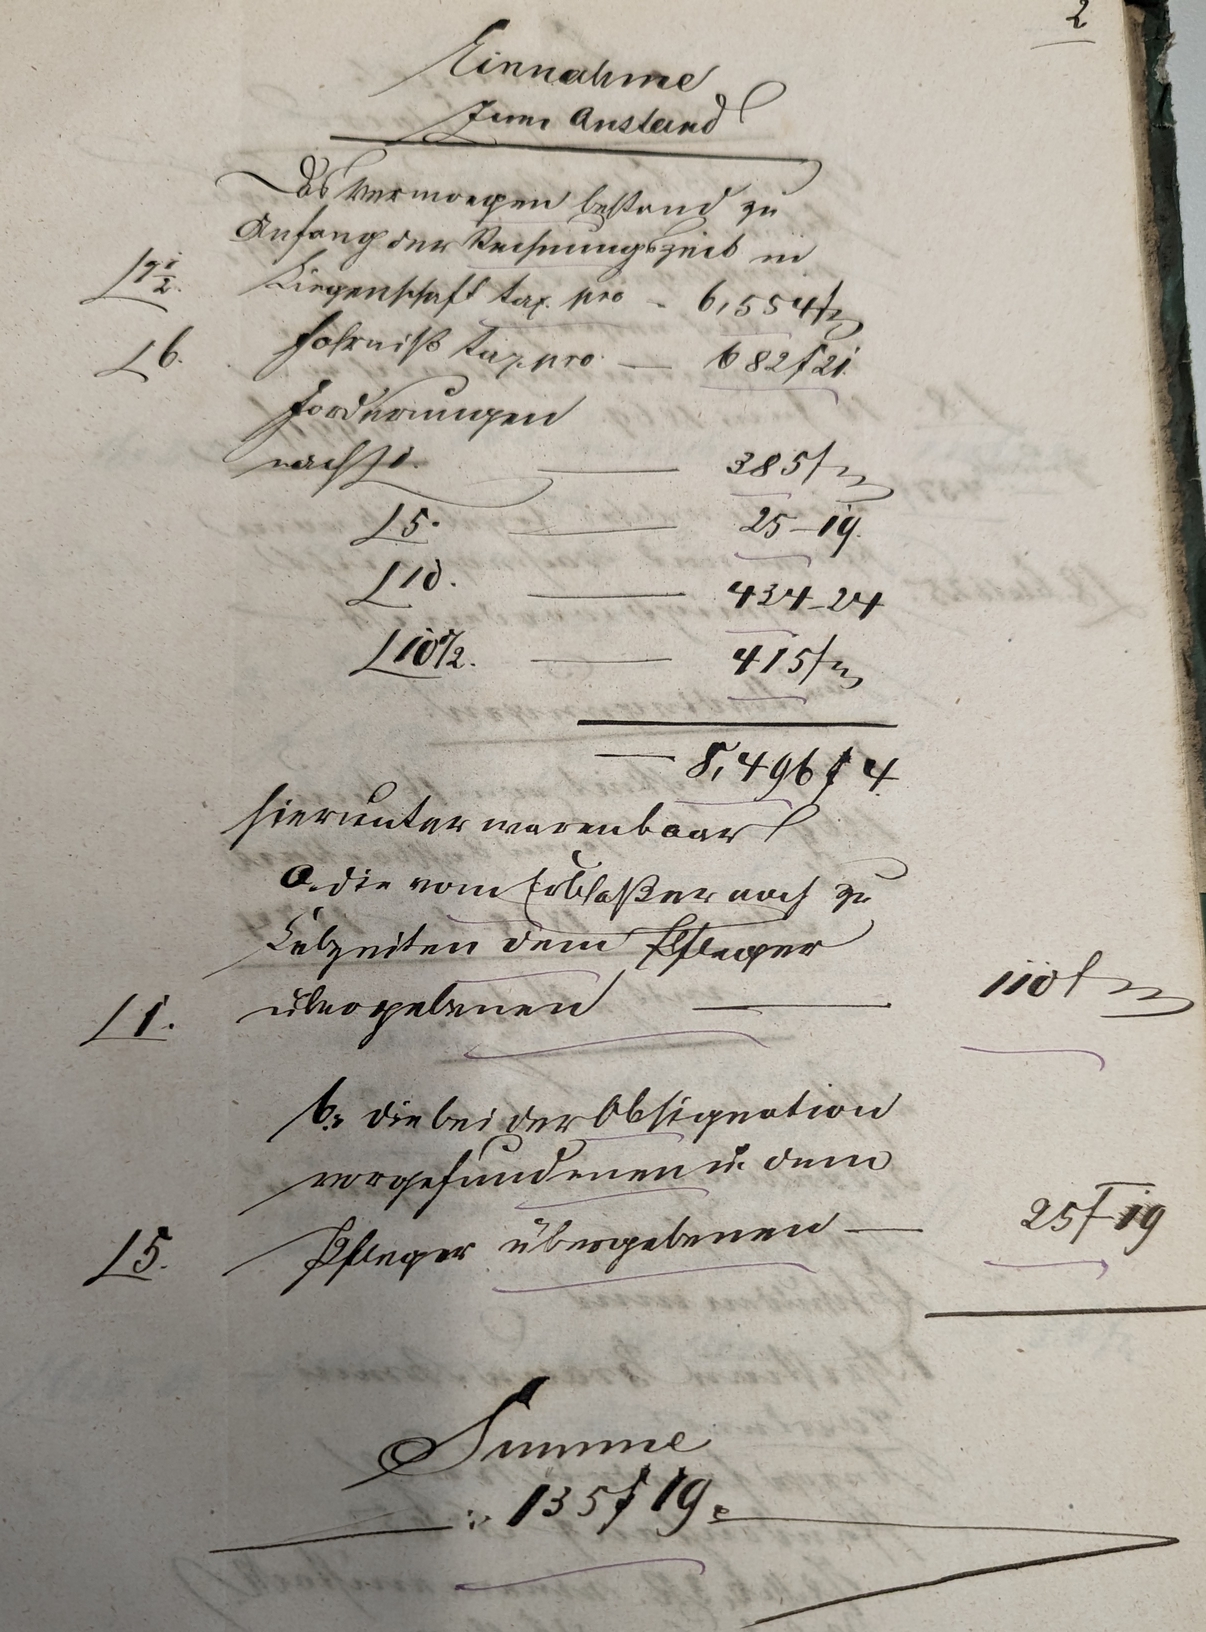 2
Einnahme
Zum Anstand
Das Vermoegen bestand zu
Anfang der Rechnungszeit in
L 7 1/2. Liegenschaft tax. pro - 6,554 f
L 6. Fahrniß tax. pro. — 682 f 21.
Forderungen
nach L 1. — 385 f
L 5. — 25 - 19.
L 10. — 434 - 24
L 10 1/2. — 415 f
— 8,496 f 4.
hierunter waren baar
a. die vom Erblaßer noch zu
Lebzeiten dem Pfleger
L 1. übergebenen — 110 f
b: die bei der Obsignation
vorgefundenen u. dem
L 5. Pfleger übergebenen — 25 f 19
Summe
135 f 19.